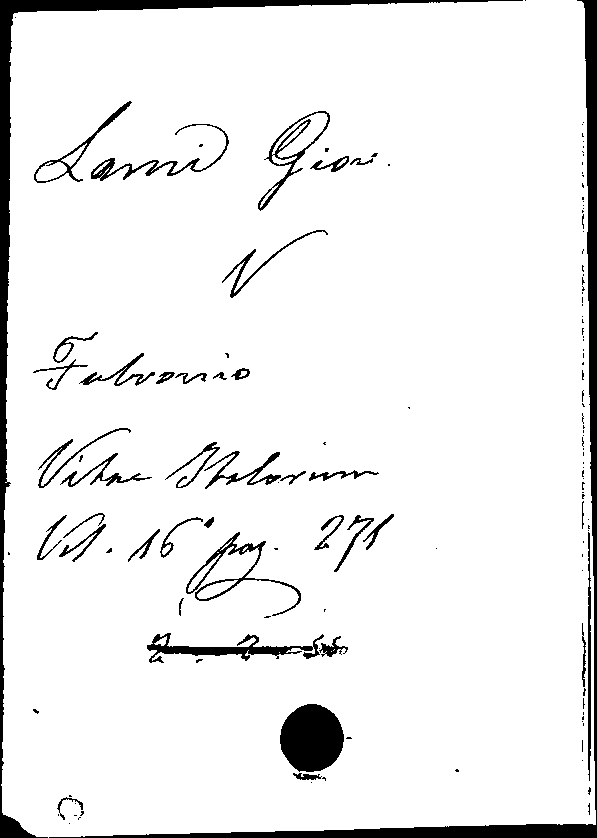 Lami Giov.
V
Fabronio
Vitae Italorum
Vol. 16° pag. 271